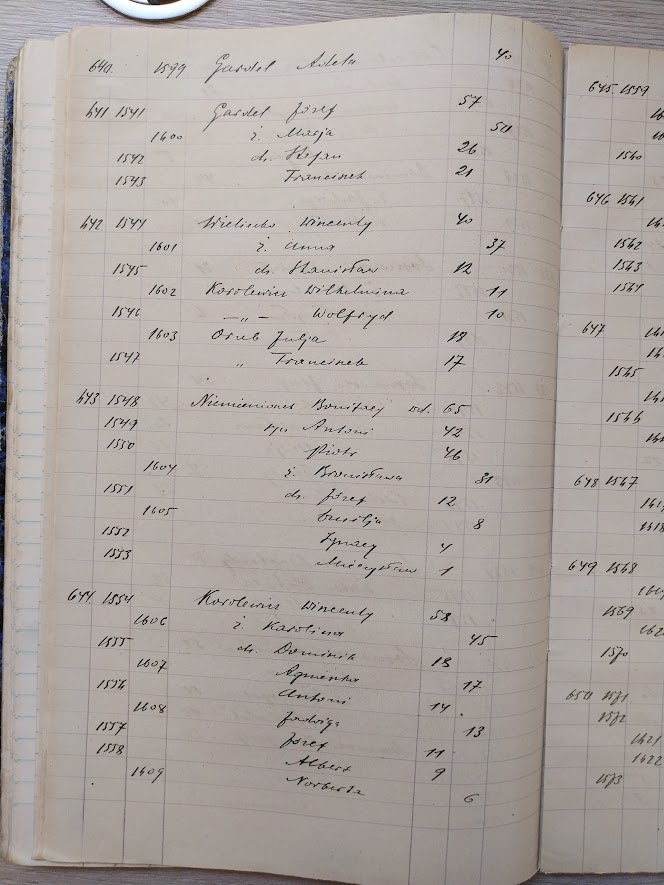 640 1599 Gardel Adela 40
641 1541 Gardel Józef 57
1600 ż. Marja 50
1542 dz. Stefan 26
1543 Franciszek 21
642 1544 Wincenty 40
1601 ż. Anna 37
1545 dz. Stanisław 12
1602 Karolewicz Wilhelmina 11
1546 —„— Wolfryd 10
1603 Orub Julja 18
1547 „ Franciszek 17
643 1548 Bonifacy wd. 65
1549 syn Antoni 42
1550 Piotr 46
1604 ż. Bronisława 31
1551 dz. Józef 12
1605 Emilja 8
1552 Ignacy 4
1553 Mieczysław 1
644 1554 Karolewicz Wincenty 58
1606 ż. Karolina 45
1555 dz. Dominik 18
1607 Agnieszka 17
1556 Antoni 14
1608 Jadwiga 13
1557 Józef 11
1558 Albert 9
1609 Norberta 6
645 1559
1560
646 1561
1562
1563
1564
647
1565
1566
648 1567
649 1568
1569
1570
650 1571
1572
1621
1622
1573